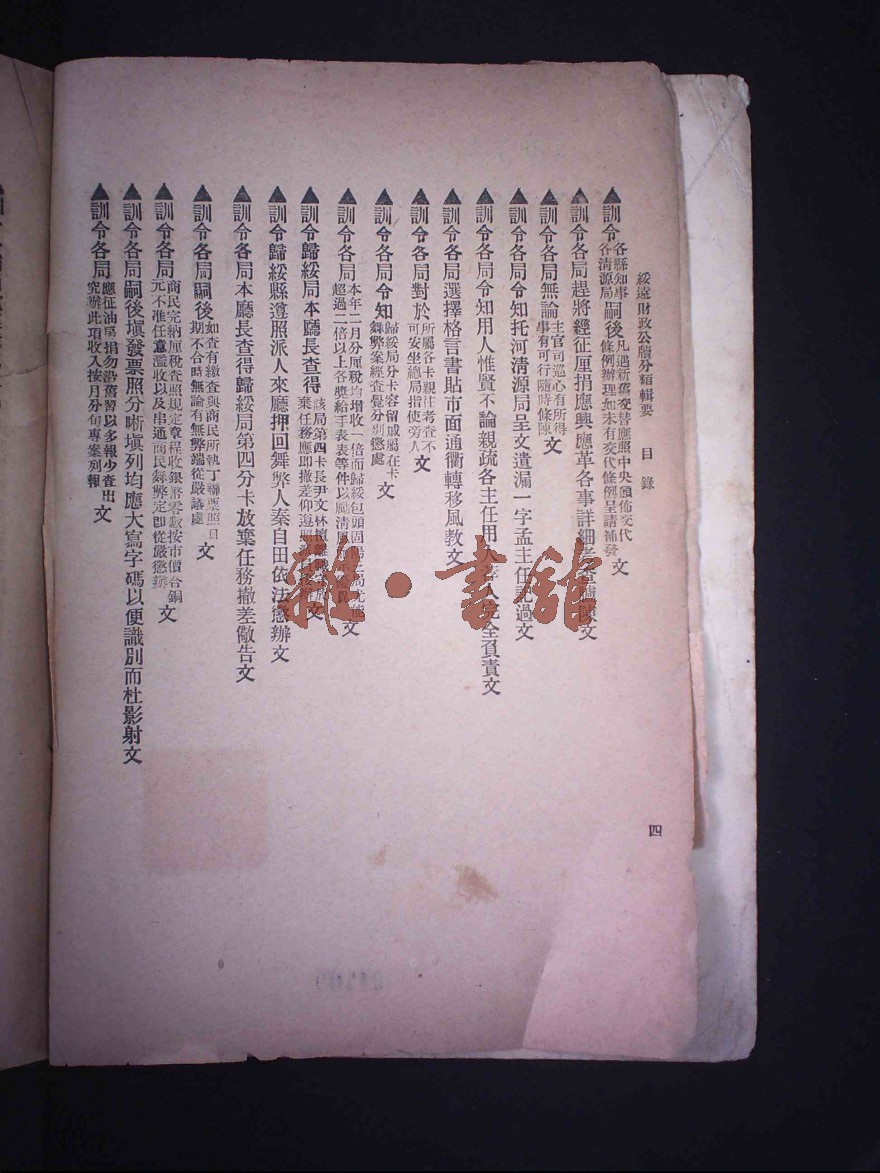 綏遠財政公牘分類輯要　目錄
四
▲訓令各縣知事各清源局嗣後凡遇新舊交替應照中央頒佈交代條例辦理如未有交代條例呈請補發文
▲訓令各局趕將經征厘捐應興應革各事詳細考查 文
▲訓令各局無論主官司巡心有所得事有可行隨時條陳文
▲訓令各局令知托河清源局呈文遺漏一字孟主任記過文
▲訓令各局令知用人惟賢不論親疏各主任用人 完全負責文
▲訓令各局選擇格言書貼市面通衢轉移風教文
▲訓令各局對於所屬各卡親往考查不可安坐總局指使旁人文
▲訓令各局令知歸綏局分卡容留戚屬在卡舞弊案經查覺分別懲處文
▲訓令各局本年二月分厘稅均增收一倍而歸綏包頭固陽 局尤能超過二倍以上各獎給手表表等件以勵清 文
▲訓令歸綏局本廳長查得該局第四卡長尹文林擅離 棄任務應即撤差仰遵照 文
▲訓令歸綏縣遵照派人來廳押回舞弊人秦自田依法懲辦文
▲訓令各局本廳長查得歸綏局第四分卡放棄任務撤差儆告文
▲訓令各局嗣後如查有繳查與商民所執丁聯票照日期不合時無論有無弊端從嚴議處文
▲訓令各局商民完納厘稅查照規定章程收銀將零數按市價合銅元不准任意濫收以及串通商民舞弊定即從嚴懲辦文
▲訓令各局嗣後塡發票照分晰塡列均應大寫字碼以便識別而杜影射文
▲訓令各局應征油 捐勿沿舊習以多報少查出究辦此項收入按月分旬專案列報文
雜·書館